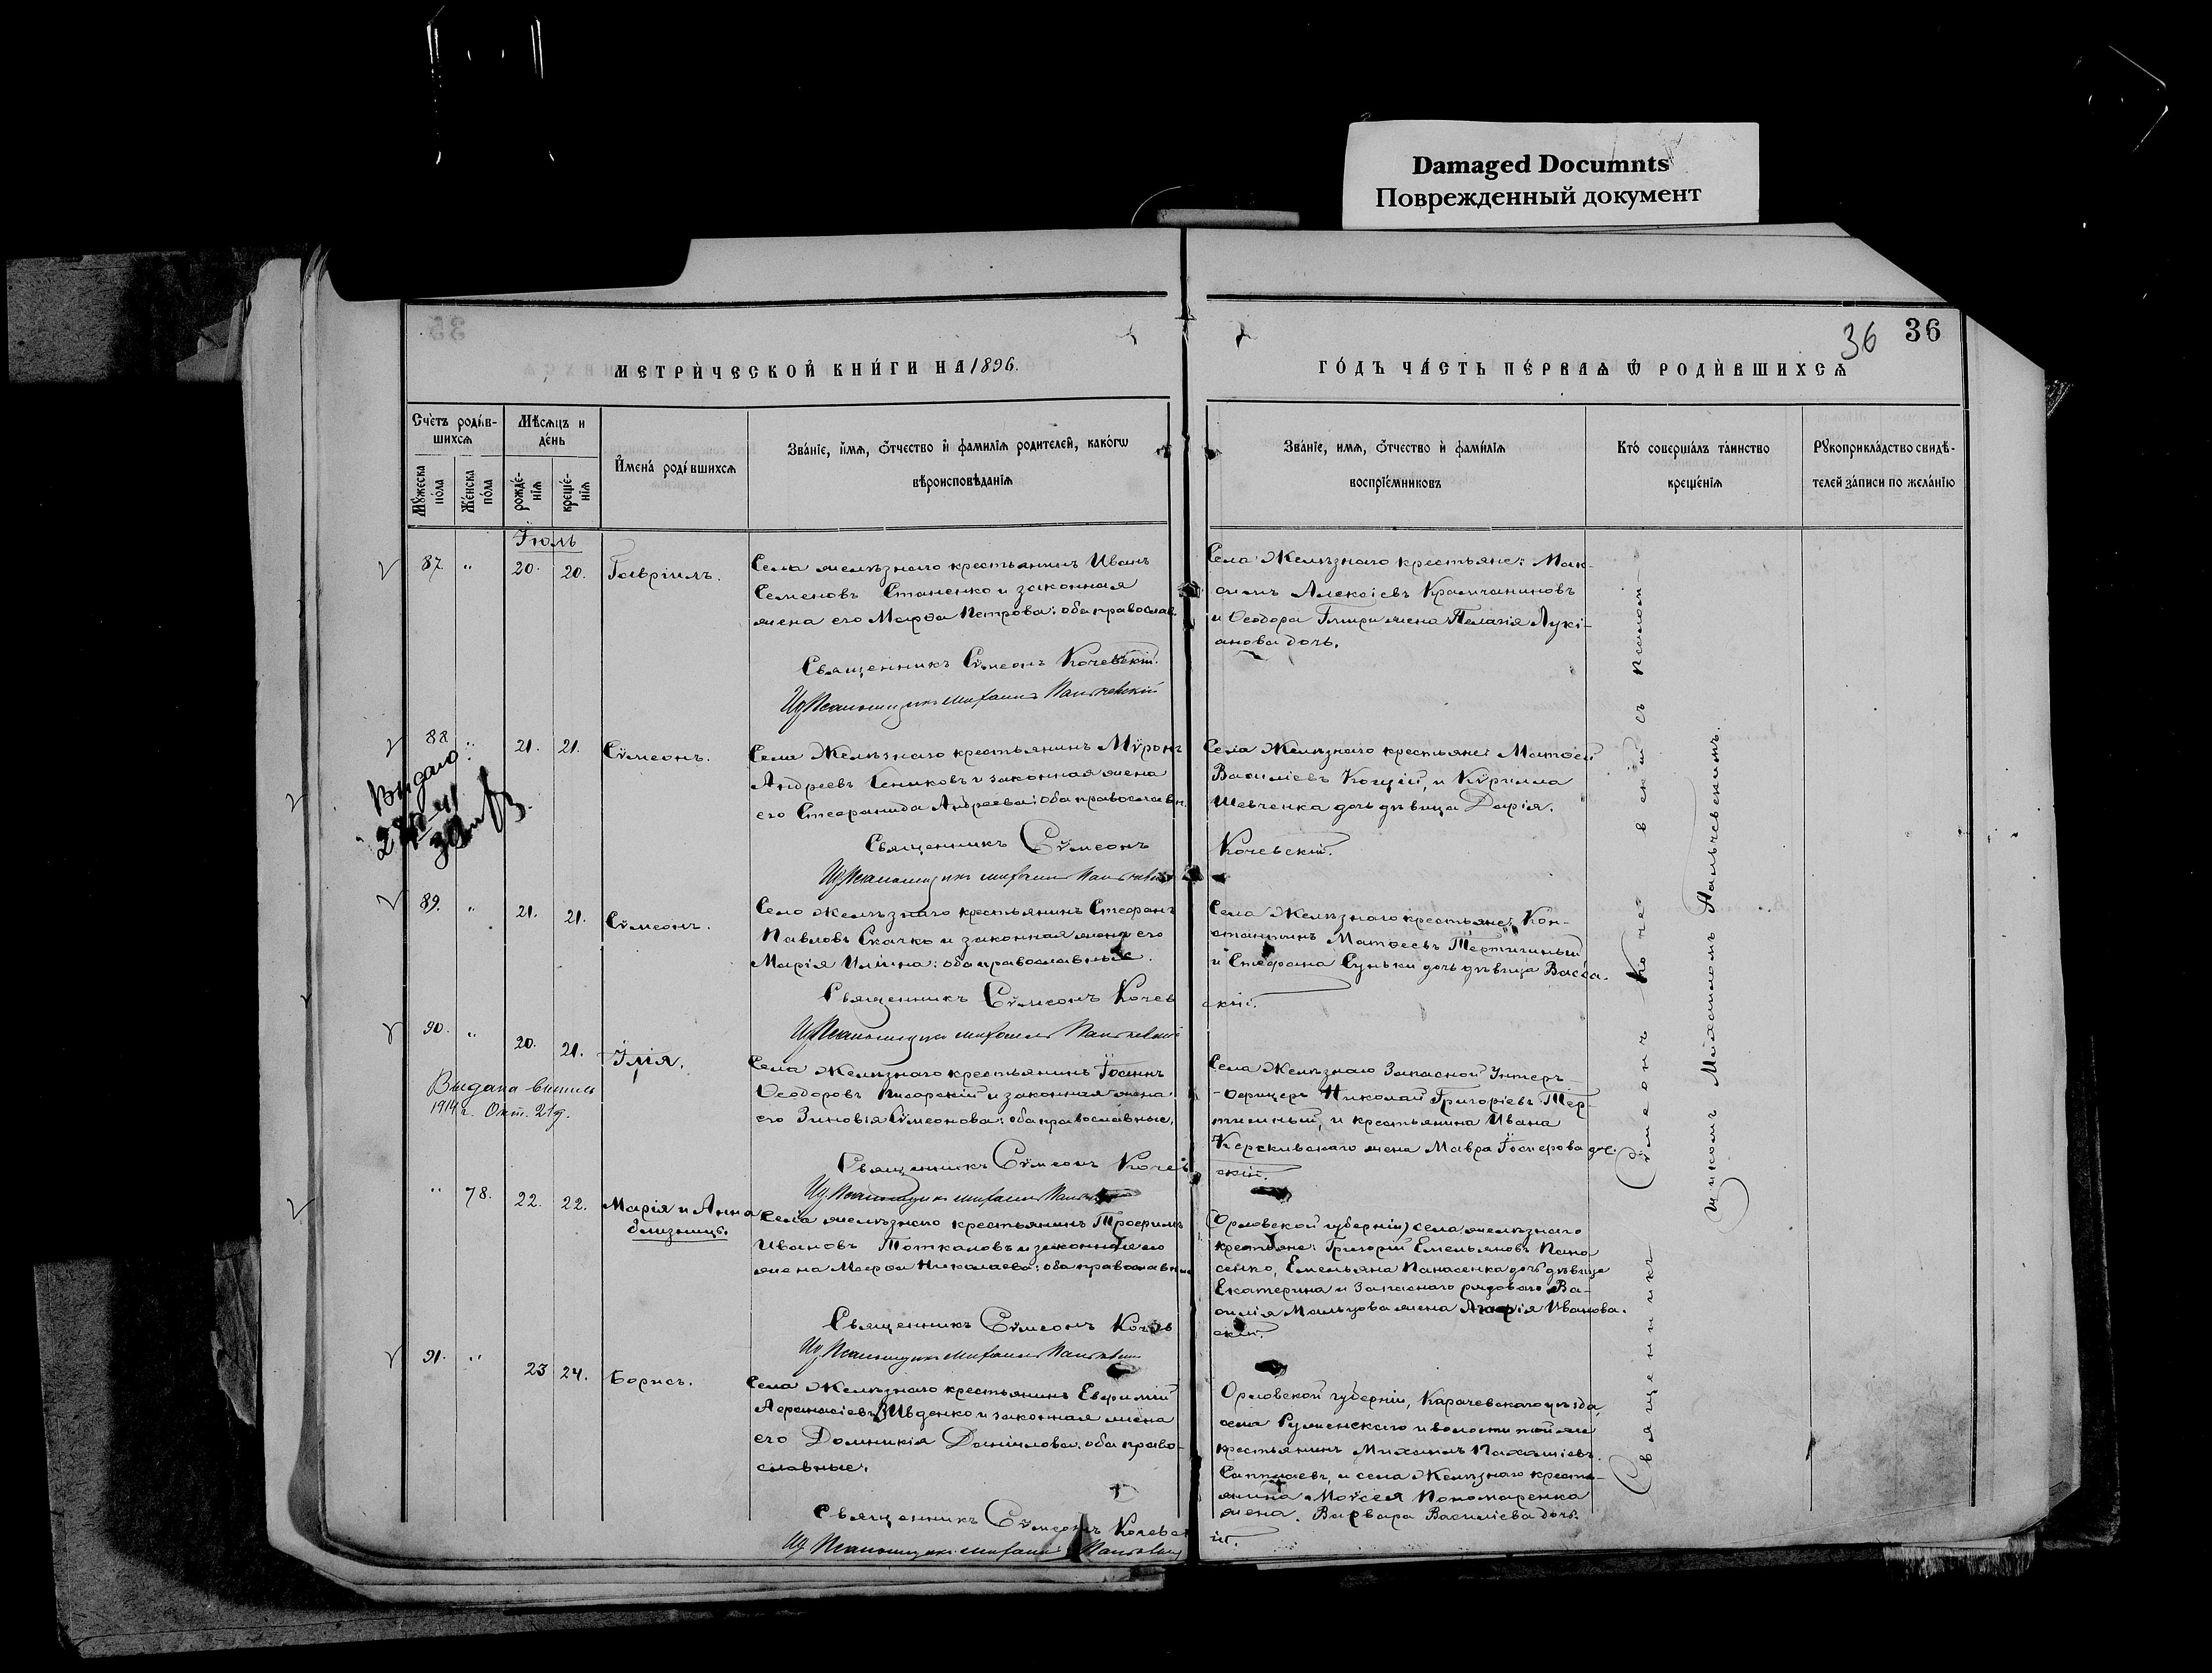 Damaged Documnts
Поврежденный документ
36 36
МЕТРИЧЕСКОЙ КНИГИ НА 1896.
ГОДЪ ЧАСТЬ ПЕРВАЯ Ѡ РОДИВШИХСЯ
Счетъ родив-
шихся
Мѣсяцъ и
день
Мужеска
пола
Женска
пола
рожде-
нія
креще-
нія
Имена родившихся
Званіе, имя, отчество и фамилія родителей, какогѡ
вѣроисповѣданія
Званіе, имя, отчество и фамилія
воспріемниковъ
Кто совершалъ таинство
крещенія
Рукоприкладство свидѣ-
телей записи по желанію
Іюль
87. " 20. 20. Гавріилъ.
Села Желѣзнаго крестьянинъ Иванъ
Семеновъ Станенко и законная
жена его Марѳа Петрова: оба православ.
Священникъ Сѵмеонъ Кочевскій.
Псаломщикъ Михаилъ
Села Желѣзнаго крестьяне: Мак-
симъ Алексіевъ Крамчаниновъ
и Ѳеодора жена Пелагія Лукі-
анова дочь.
88 " 21. 21. Сѵмеонъ.
Выдано
Села Желѣзнаго крестьянинъ Мѵронъ
Андреевъ и законная жена
его Стефанида Андреева: оба православн.
Священникъ Сѵмеонъ
Кочевскій.
Псаломщикъ Михаилъ
Села Желѣзнаго крестьяне: Матѳей
Василіевъ Коцій, и Кѵрилла
Шевченка дочь дѣвица Дарія.
89. " 21. 21. Сѵмеонъ.
Села Желѣзнаго крестьянинъ Стефанъ
Павловъ Скачко и законная жена его
Марія Иліина: оба православные.
Священникъ Сѵмеонъ Кочев
скій.
Псаломщикъ Михаилъ
Села Желѣзнаго крестьяне: Кон-
стантинъ Матѳеевъ Тертишный
и Стефана Суньки дочь дѣвица Васса.
90. " 20. 21. Илія.
Выдана выпись
1914 г. Окт. 21 д.
Села Желѣзнаго крестьянинъ Іоаннъ
Ѳеодоровъ Писарскій и законная жена
его Зиновія Сѵмеонова: оба православные.
Священникъ Сѵмеонъ Кочев
скій.
Псаломщикъ Михаилъ
Села Желѣзнаго Запасной Унтеръ
-офицеръ Николай Григоріевъ Тер-
тишный, и крестьянина Ивана
жена Мавра Іосифова доч.
" 78. 22. 22. Марія и Анна
близницы.
Села Желѣзнаго крестьянинъ Трофимъ
Ивановъ Тоткаловъ и законная его
жена Марѳа Николаева: оба православные
Священникъ Сѵмеонъ Кочев
скій.
Псаломщикъ Михаилъ
(Орловской губерніи) села Желѣзнаго
крестьяне: Григорій Емельяновъ Пана
сенко, Емельяна Панасенка дочь дѣвица
Екатерина и Запаснаго рядоваго Ва-
силія Мальцова жена Иванова.
91. " 23 24. Борисъ.
Села Желѣзнаго крестьянинъ Евфимій
Афанасіевъ Ивденко и законная жена
его Домникія Даніилова: оба право-
славные.
Священникъ Сѵмеонъ Кочевс
ій.
Псаломщикъ Михаилъ
Орловской губерніи, Карачевскаго уѣзда,
села и волости той же
крестьянинъ Михаилъ
и села Желѣзнаго крестья-
нина Моѵсея Пономаренка
жена Варвара Василіева дочь.
Священникъ Сѵмеонъ Кочевскій съ псалом-
щикомъ Михаиломъ Пальчевскимъ.